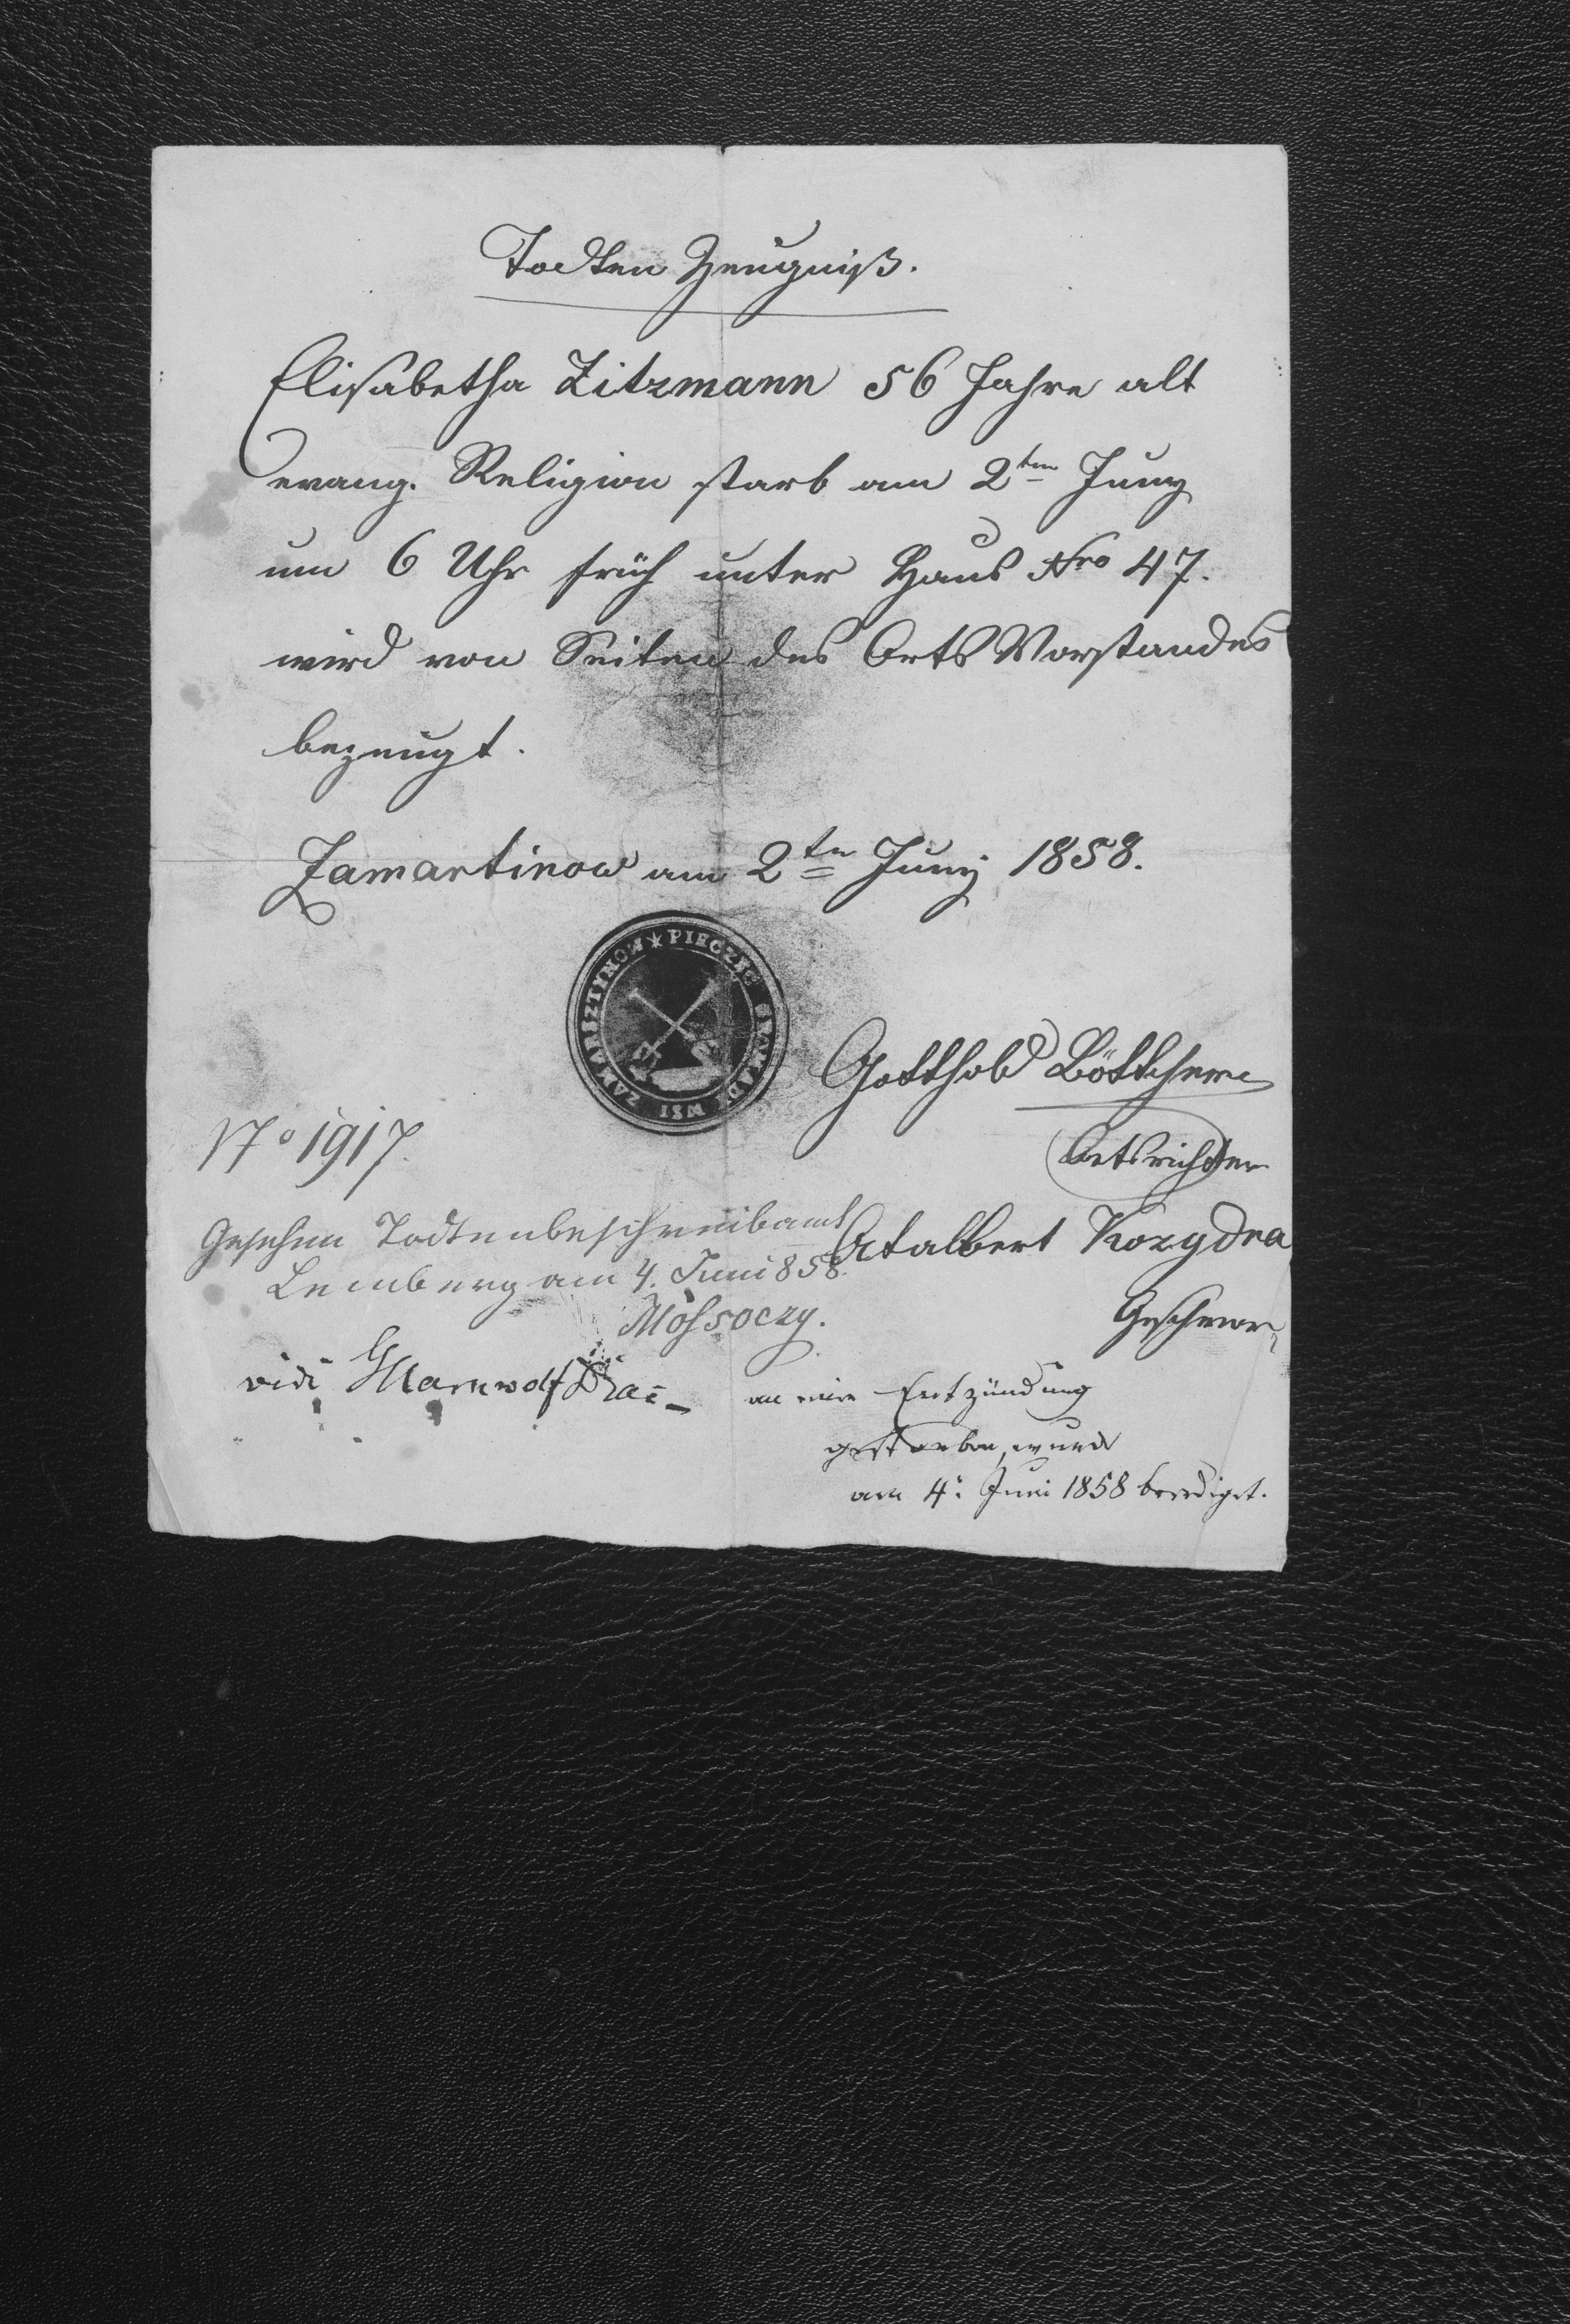 Todten Zeugniß.
Elisabetha Zitzmann 56 Jahre alt
evang. Religion starb am 2ten Juny
um 6 Uhr früh unter Haus Nro 47.
wird von Seiten des Orts Vorstandes
bezeugt.
Zamartinow am 2te Juny 1858.
ZAMARSZTYNOW ★ PIECZĘĆ GROMADY WSI
Gotthold Böttcher
Ortsrichter
No 1917.
Gesehen Todtenbeschreibamt
Lemberg am 4. Juni 858.
Mossoczy.
Atalbert Kozydra
Geschwor
vidi
an einer Entzündung
gestorben, wurde
am 4. Juni 1858 beerdiget.